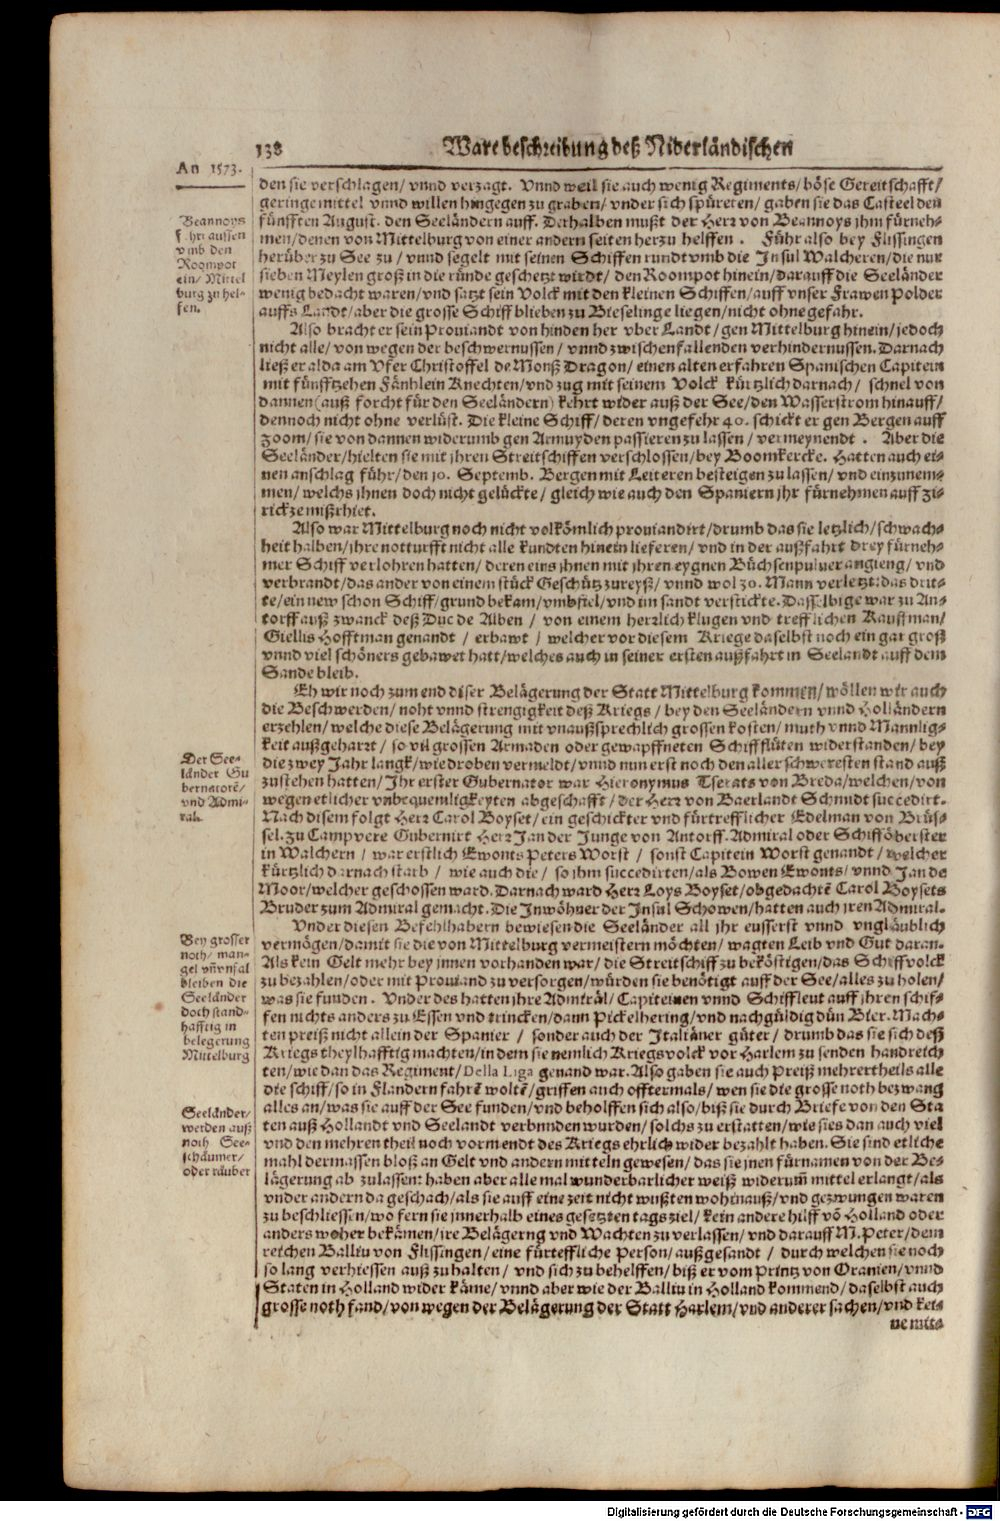 138 Ware beschreibung deß Niderländischen
An 1573.
den sie verschlagen/ vnnd verzagt. Vnnd weil sie auch wenig Regiments/ böse Gereitschafft/
geringe mittel vnnd willen hingegen zu graben/ vnder sich spüreten/ gaben sie das Casteel den
fünfften August. den Seeländern auff. Derhalben mußt der Herr von Beannoys jhm fürneh-
men/ denen von Mittelburg von einer andern seiten herzu helffen. Führ also bey Flissingen
herüber zu See zu/ vnnd segelt mit seinen Schiffen rundt vmb die Insul Walcheren/ die nur
sieben Meylen groß in die ründe geschetzt wirdt/ den Roompot hinein/ darauff die Seeländer
wenig bedacht waren/ vnd satzt sein Volck mit den kleinen Schiffen/ auff vnser Frawen Polder
auffs Landt/ aber die grosse Schiff blieben zu Bieselinge liegen/ nicht ohne gefahr.
Beannoys
f hrt aussen
vmb den
Roompot
ein/ Mittel
burg zu hel-
fen.
Also bracht er sein Proviandt von hinden her vber Landt/ gen Mittelburg hinein/ jedoch
nicht alle/ von wegen der beschwernussen/ vnnd zwischenfallenden verhindernussen. Darnach
ließ er alda am Vfer Christoffel de Monß Dragon/ einen alten erfahren Spanischen Capitein
mit fünfftzehen Fänhlein Knechten/ vnd zug mit seinem Volck kürtzlich darnach/ schnel von
dannen (auß forcht für den Seeländern) kehrt wider auß der See/ den Wasserstrom hinauff/
dennoch nicht ohne verlüst. Die kleine Schiff/ deren vngefehr 40. schickt er gen Bergen auff
Zoom/ sie von dannen widerumb gen Armuyden passieren zu lassen/ vermeynendt. Aber die
Seeländer/ hielten sie mit jhren Streitschiffen verschlossen/ bey Boomkercke. Hatten auch ei-
nen anschlag führ/ den 10. Septemb. Bergen mit Leiteren besteigen zu lassen/ vnd einzunem-
men/ welchs jhnen doch nicht gelückte/ gleich wie auch den Spaniern jhr fürnehmen auff Zi-
rickze mißrhiet.
Also war Mittelburg noch nicht volkömlich proviandirt/ drumb das sie letzlich/ schwach-
heit halben/ jhre notturfft nicht alle kundten hinein lieferen/ vnd in der außfahrt drey fürneh-
mer Schiff verlohren hatten/ deren eins jhnen mit jhren eygnen Büchsenpulver angieng/ vnd
verbrandt/ das ander von einem stück Geschütz zureyß/ vnnd wol 30. Mann verletzt: das drit-
te/ ein new schon Schiff/ grund bekam/ vmbfiel/ vnd im sandt verstickte. Dasselbige war zu An-
torff auß zwanck deß Duc de Alben/ von einem herrlich klugen vnd trefflichen Kauffman/
Giellis Hofftman genandt/ erbawt/ welcher vor diesem Kriege daselbst noch ein gar groß
vnnd viel schöners gebawet hatt/ welches auch in seiner ersten außfahrt in Seelandt auff dem
Sande bleib.
Eh wir noch zum end diser Belägerung der Statt Mittelburg kommen/ wöllen wir auch
die Beschwerden/ noht vnnd strengigkeit deß Kriegs/ bey den Seeländern vnnd Holländern
erzehlen/ welche diese Belägerung mit vnaußsprechlich grossen kosten/ muth vnnd Mannlig-
keit außgeharrt/ so vil grossen Armaden oder gewapffneten Schiffflüten widerstanden/ bey
die zwey Jahr langk/ wie droben vermeldt/ vnnd nun erst noch den aller schweresten stand auß
zustehen hatten/ Jhr erster Gubernator war Hieronymus Tserats von Breda/ welchen/ von
wegen etlicher vnbequemligkeyten abgeschafft/ der Herr von Baerlandt Schmidt succedirt.
Nach disem folgt Herr Carol Boyset/ ein geschickter vnd fürtrefflicher Edelman von Brüs-
sel. Zu Campvere Gubernirt Herr Jan der Junge von Antorff. Admiral oder Schifföberster
in Walchern/ war erstlich Ewonts Peters Worst/ sonst Capitein Worst genandt/ welcher
kürtzlich darnach starb/ wie auch die/ so jhm succedirten/ als Bowen Ewonts/ vnnd Jan de
Moor/ welcher geschossen ward. Darnach ward Herr Loys Boyset/ obgedachtē Carol Boysets
Bruder zum Admiral gemacht. Die Inwöhner der Insul Schowen/ hatten auch jren Admiral.
Der See-
länder Gu
bernatorē/
vnd Admi-
ral.
Vnder diesen Befehlhabern bewiesen die Seeländer all jhr eusserst vnnd vngläublich
vermögen/ damit sie die von Mittelburg vermeistern möchten/ wagten Leib vnd Gut daran.
Als kein Gelt mehr bey jnnen vorhanden war/ die Streitschiff zu beköstigen/ das Schiffvolck
zu bezahlen/ oder mit Proviand zu versorgen/ würden sie benötigt auff der See/ alles zu holen/
was sie funden. Vnder des hatten jhre Admiräl/ Capiteinen vnnd Schiffleut auff jhren schif-
fen nichts anders zu Essen vnd trincken/ dann Pickelhering/ vnd nachgüldig dün Bier. Mach-
ten preiß nicht allein der Spanier/ sonder auch der Italiäner güter/ drumb das sie sich deß
Kriegs theylhafftig machten/ in dem sie nemlich Kriegsvolck vor Harlem zu senden handreich
ten/ wie dan das Regiment/ Della Liga genand war. Also gaben sie auch Preiß mehrertheils alle
die schiff/ so in Flandern fahrē woltē/ griffen auch offtermals/ wen sie die grosse noth bezwang
alles an/ was sie auff der See funden/ vnd beholffen sich also/ biß sie durch Briefe von den Sta
ten auß Hollandt vnd Seelandt verbunden wurden/ solchs zu erstatten/ wie sies dan auch viel
vnd den mehren theil noch vor mendt des Kriegs ehrlich wider bezahlt haben. Sie sind etliche
mahl dermassen bloß an Gelt vnd andern mitteln gewesen/ das sie jnen fürnamen von der Be-
lägerung ab zulassen: haben aber alle mal wunderbarlicher weiß widerum̄ mittel erlangt/ als
vnder andern da geschach/ als sie auff eine zeit nicht wußten wohinauß/ vnd gezwungen waren
zu beschliessen/ wo fern sie jnnerhalb eines gesetzten tags ziel/ kein andere hilff vō Holland oder
anders woher bekämen/ jre Belägerng vnd Wachten zu verlassen/ vnd darauff M. Peter/ dem
reichen Balliu von Flissingen/ eine fürteffliche Person/ außgesandt/ durch welchen sie noch
so lang verhiessen auß zu halten/ vnd sich zu behelffen/ biß er vom Printz von Oranien/ vnnd
Staten in Holland wider käme/ vnnd aber wie der Balliu in Holland kommend/ daselbst auch
grosse noth fand/ von wegen der Belägerung der Statt Harlem/ vnd anderer sachen/ vnd kei-
ne mit-
Bey grosser
noth/ man-
gel vn̄ vnfal
bleiben die
Seeländer
doch stand-
hafftig in
belegerung
Mittelburg
Seeländer/
werden auß
noth See-
schäumer/
oder räuber
Digitalisierung gefördert durch die Deutsche Forschungsgemeinschaft - DFG